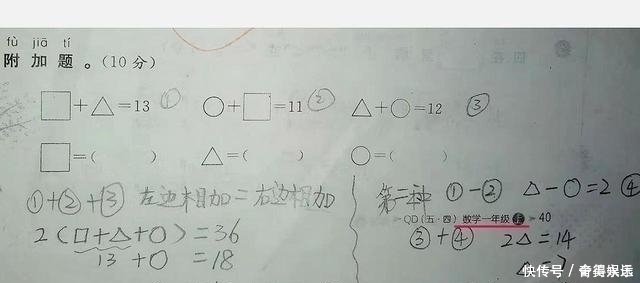 fù jiā tí
附加题。(10分)
□+△=13 ① ○+□=11 ② △+○=12 ③
□=( ) △=( ) ○=( )
①+②+③ 左边相加=右边相加
2(□+△+○)=36
13+○=18
第二种 ①-② △-○=2 ④
QD(五·四) 数学一年级 上 40
③+④ 2△=14
△=7
快传号/